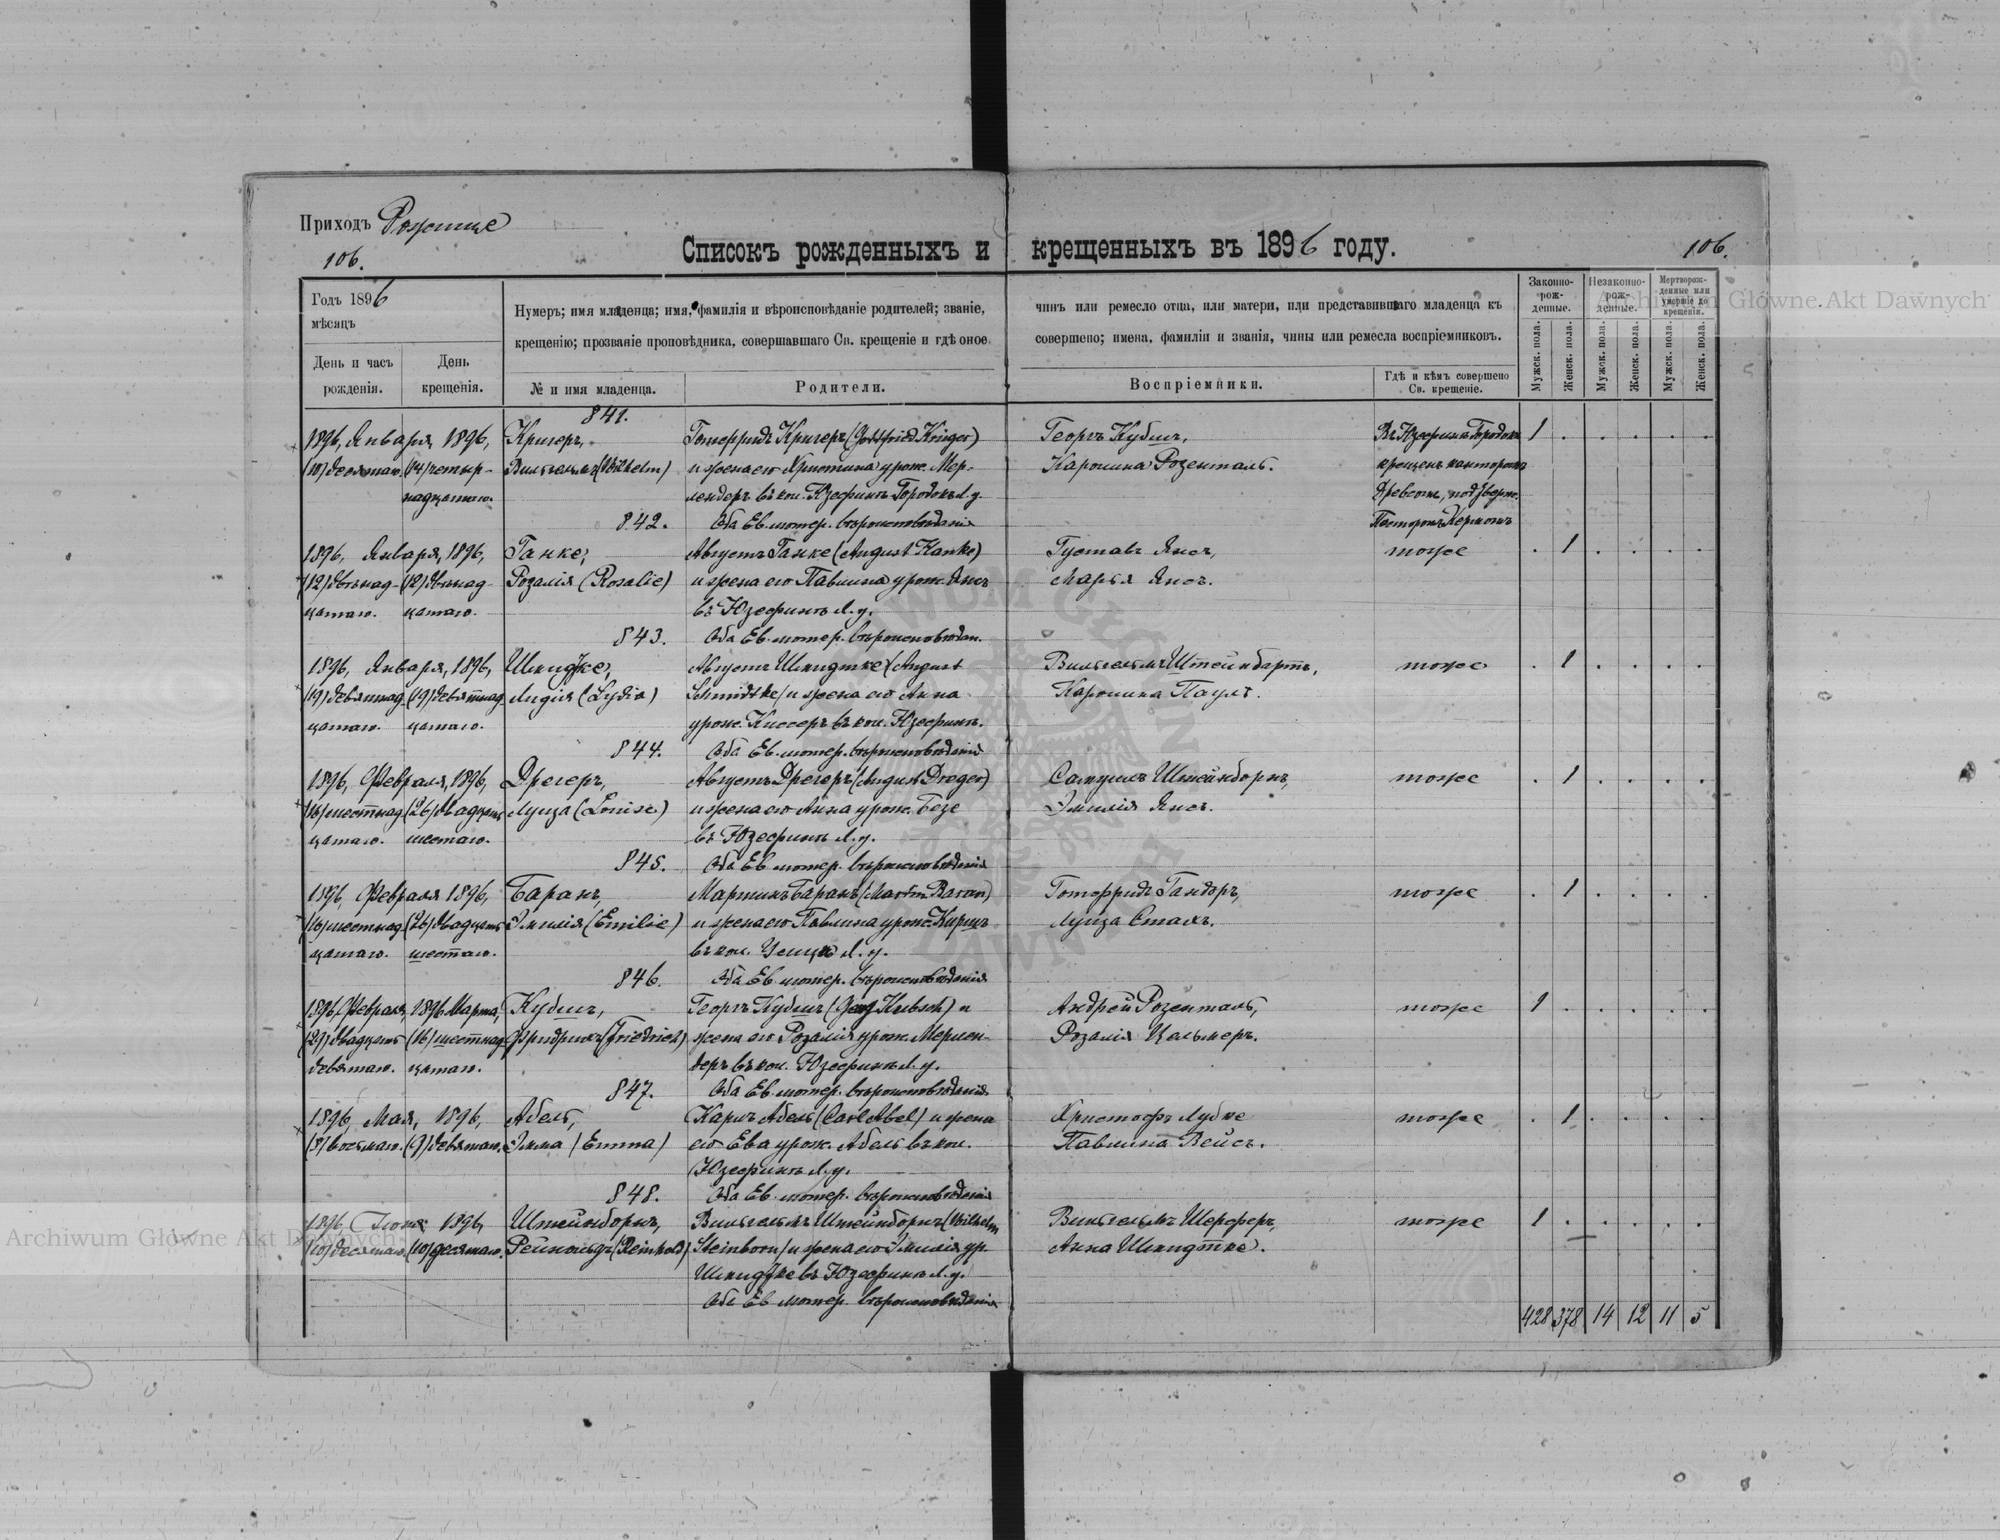 Приходъ Рожище
106.
Списокъ рожденныхъ и крещенныхъ въ 1896 году.
106.
Годъ 1896
мѣсяцъ
День и часъ рожденія.
День крещенія.
Нумеръ; имя младенца; имя, фамилія и вѣроисповѣданіе родителей; званіе, чинъ или ремесло отца, или матери, или представившаго младенца къ
крещенію; прозваніе проповѣдника, совершавшаго Св. крещеніе и гдѣ оное совершено; имена, фамиліи и званія, чины или ремесла воспріемниковъ.
№ и имя младенца.
Родители.
Воспріемники.
Гдѣ и кѣмъ совершено Св. крещеніе.
Законно-рож-денные.
Незаконно-рож-денные.
Мертворож-денные или умершіе до крещенія.
Мужск. пола.
Женск. пола.
Мужск. пола.
Женск. пола.
Мужск. пола.
Женск. пола.
841.
1896, Января, 1896, Кригеръ, Готфридъ Кригеръ (Gottfried Krüger) Георгъ Кубшъ, Въ Юзефинѣ Городокъ 1 . . . . .
(10) десятаго. (14) четыр- Вильгельмъ (Wilhelm) и жена его Христина урож. Мер- Каролина Розенталь. крещенъ канторомъ
надцатаго. лендеръ въ кол. Юзефинъ Городокъ Л. у. подтверж.
842. Оба Ев. лютер. вѣроисповѣданія Пасторомъ Керномъ
1896, Января, 1896, Ганке, Августъ Ганке (August Hanke) Густавъ Янсъ, тоже . 1 . . . .
(12) двѣнад- (12) двѣнад- Розалія (Rosalie) и жена его Павлина урож. Янсъ Марья Янсъ.
цатаго. цатаго. въ Юзефинѣ Л. у.
843. Оба Ев. лютер. вѣроисповѣдан.
1896, Января, 1896, Шмидтке, Августъ Шмидтке (August Вильгельмъ Штейнбартъ, тоже . 1 . . . .
(19) девятнад (19) девятнад Лидія (Lydia) Schmidtke) и жена его Анна Каролина Паулъ.
цатаго. цатаго. урож. Киссеръ въ кол. Юзефинъ.
844. Оба Ев. лютер. вѣроисповѣданія
1896, Февраля, 1896, Дрегеръ, Августъ Дрегеръ (August Dreger) Самуилъ Штейнборнъ, тоже . 1 . . . .
(16) шестнад (26) двадцать Луиза (Louise) и жена его Анна урож. Безе Эмилія Янсъ.
цатаго. шестаго. въ Юзефинѣ Л. у.
845. Оба Ев. лютер. вѣроисповѣданія
1896, Февраля 1896, Баранъ, Мартинъ Баранъ (Martin Baran) Готфридъ Гандоръ, тоже . 1 . . . .
(16) шестнад (26) двадцать Эмилія (Emilie) и жена его Павлина урож. Луиза Сталь.
цатаго. шестаго. въ кол. Л. у.
846. Оба Ев. лютер. вѣроисповѣданія
1896, Февраля, 1896 Марта, Кубшъ, Георгъ Кубшъ (Georg Kubsch) и Андрей Розенталь, тоже 1 . . . . .
(29) двадцать (16) шестнад Фридрихъ (Friedrich) жена его Розалія урож. Мерлен- Розалія Цельмеръ.
девятаго. цатаго. деръ въ кол. Юзефинъ Л. у.
847. Оба Ев. лютер. вѣроисповѣданія
1896, Мая, 1896, Абель, Карлъ Абель (Carl Abel) и жена Христофъ Лубке тоже . 1 . . . .
(8) восьмаго. (9) девятаго. Эмма (Emma) его Ева урож. Абель въ кол. Павлина Вейсъ.
Юзефинъ Л. у.
848. Оба Ев. лютер. вѣроисповѣданія
1896, Іюня, 1896, Штейнборнъ, Вильгельмъ Штейнборнъ (Wilhelm Вильгельмъ Шерферъ, тоже 1 . . . . .
(10) десятаго (10) десятаго. Рейнольдъ (Reinhold) Steinborn) и жена его Эмилія ур. Анна Шмидтке.
Шмидтке въ Юзефинѣ Л. у.
Оба Ев. лютер. вѣроисповѣданія
428 378 14 12 11 5
Archiwum Główne Akt Dawnych
Archiwum Główne Akt Dawnych